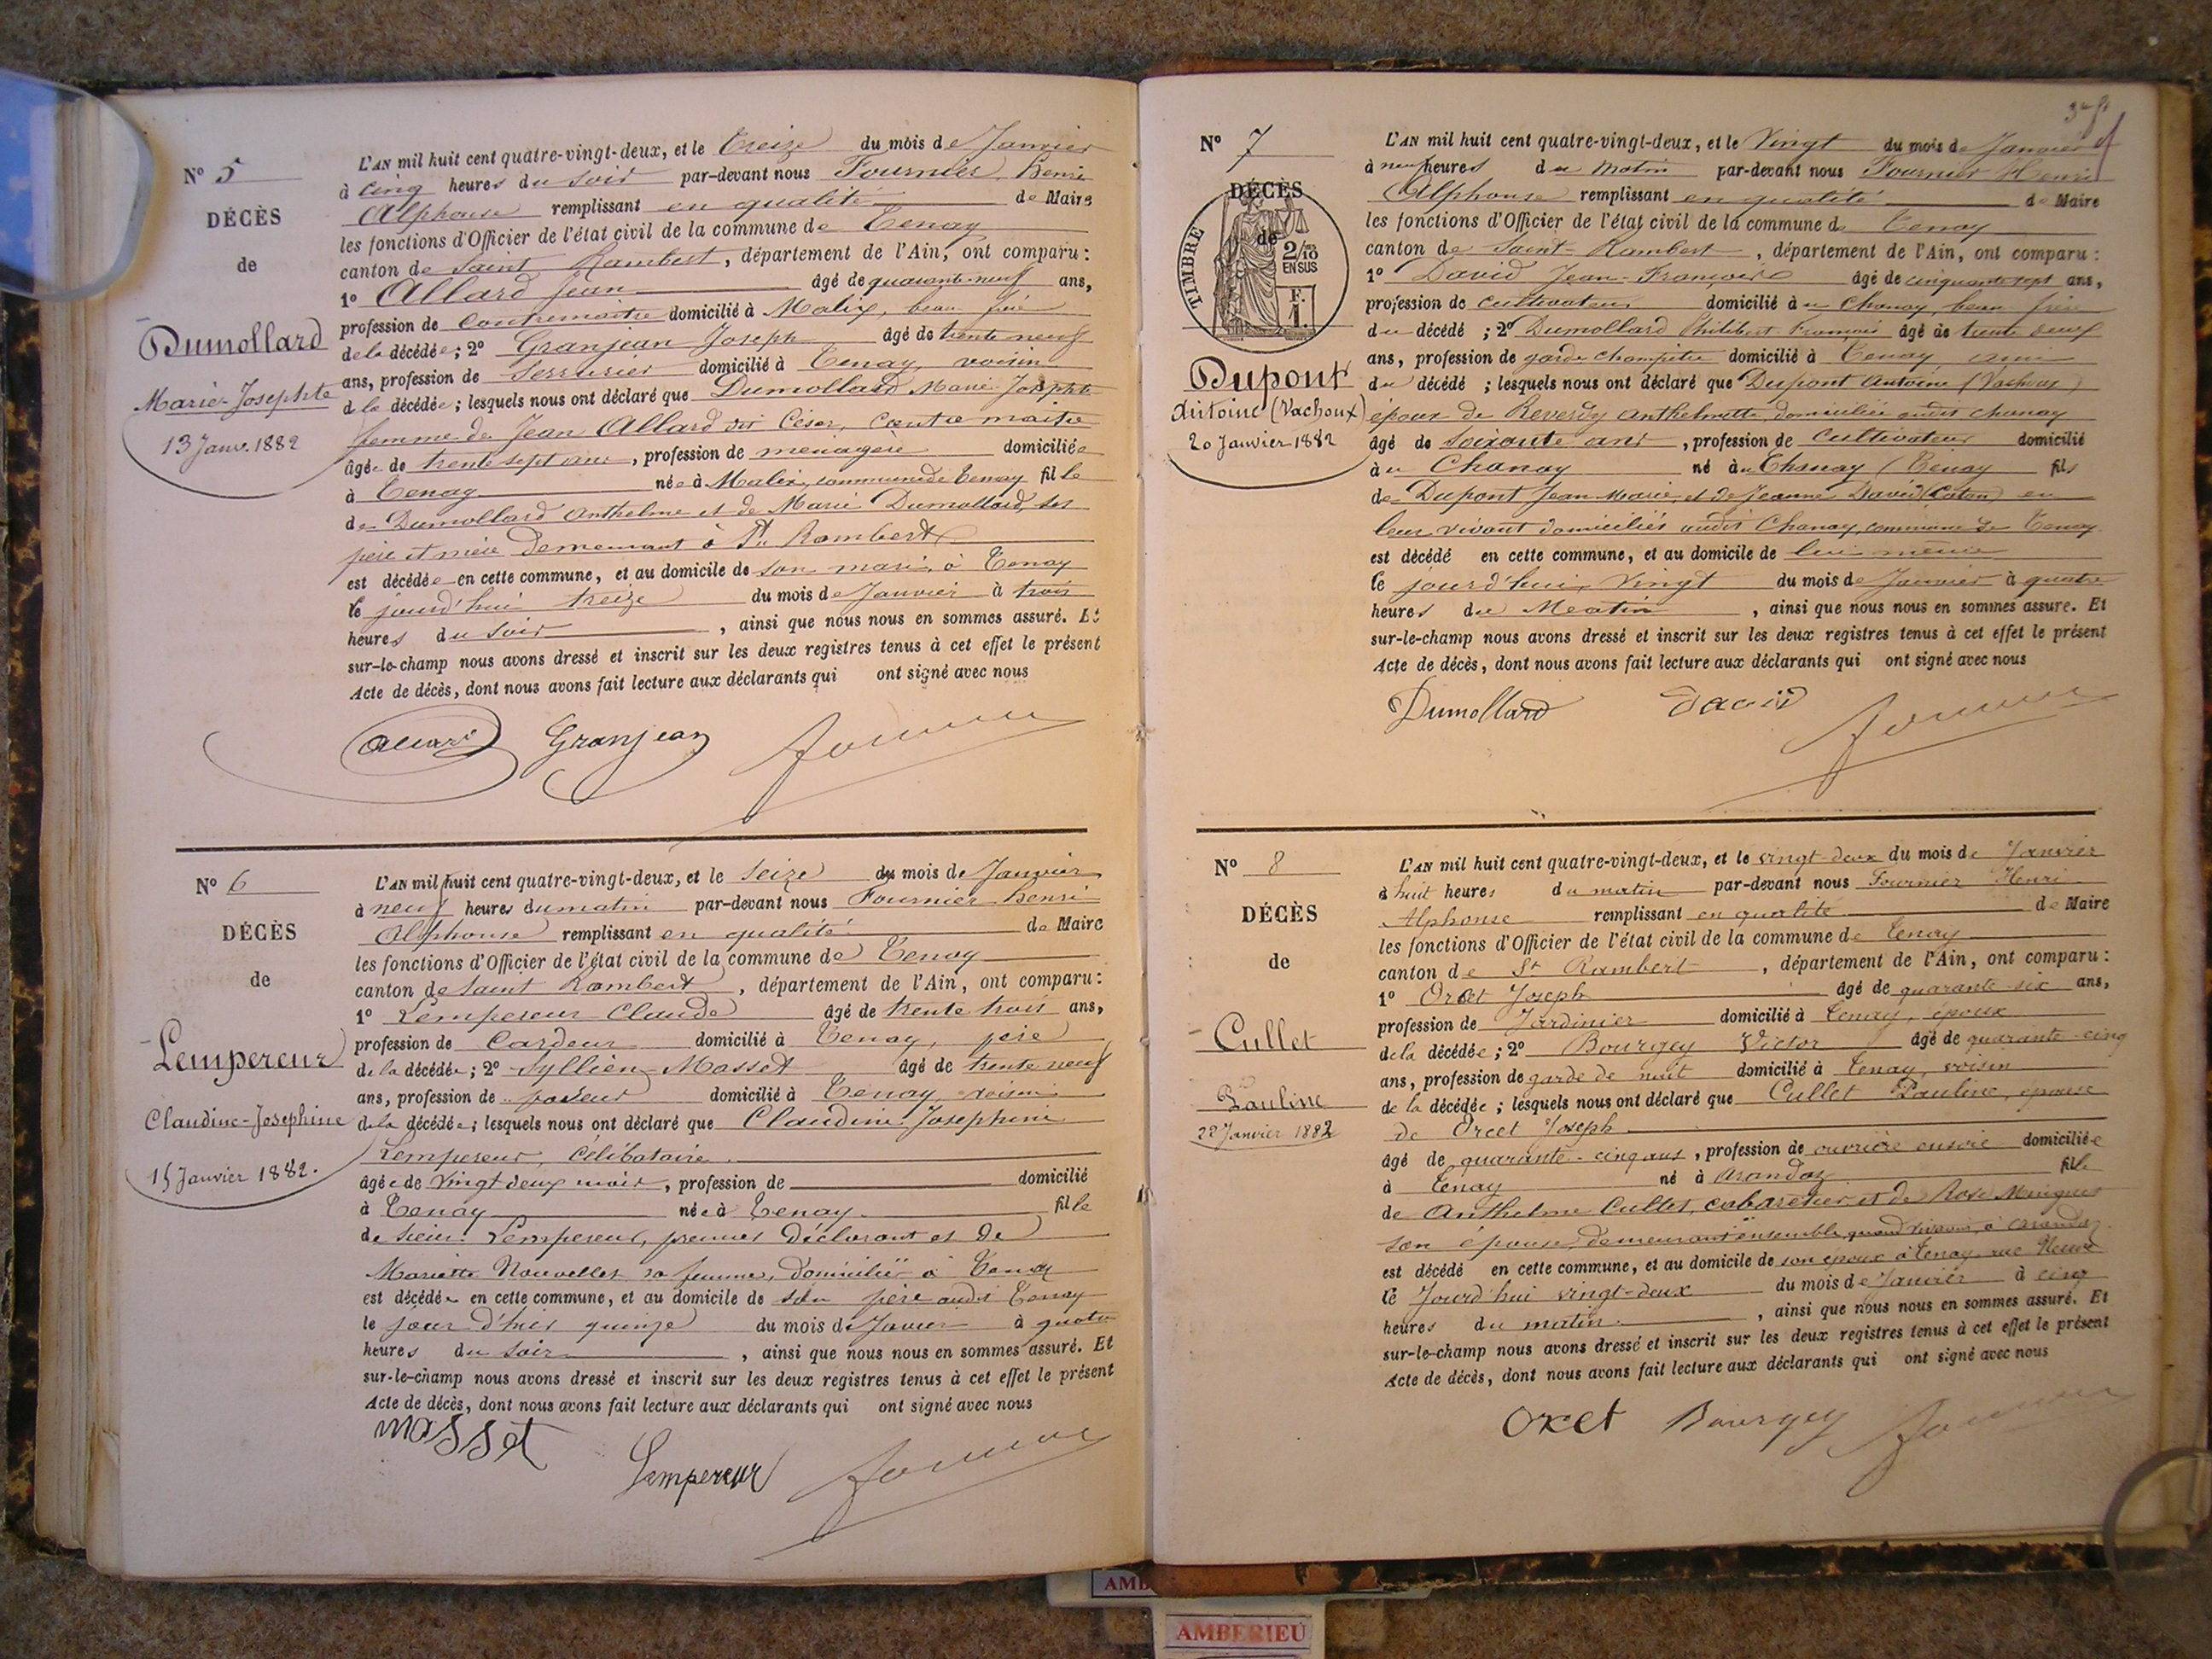 N° 5
DÉCÈS
de
Dumollard
Marie-Josephte
13 Janv. 1882
L'AN mil huit cent quatre-vingt-deux, et le treize du mois de Janvier
à cinq heures du soir par-devant nous Fournier Henri
Alphonse remplissant en qualité de Maire
les fonctions d'Officier de l'état civil de la commune de Tenay
canton de Saint Rambert, département de l'Ain, ont comparu:
1° Allard Jean âgé de quarante-neuf ans,
profession de contremaitre domicilié à Malix, beau frère
de la décédée; 2° Granjean Joseph âgé de trente neuf
ans, profession de serrurier domicilié à Tenay, voisin
de la décédée; lesquels nous ont déclaré que Dumollard Marie-Josephte
femme de Jean Allard dit César, contre maitre
âgée de trente sept ans, profession de menagère domiciliée
à Tenay née à Malix, commune de Tenay fille
de Dumollard Anthelme et de Marie Dumollard, ses
père et mère demeurant à St Rambert
est décédée en cette commune, et au domicile de son mari, à Tenay
le jourd'hui treize du mois de Janvier à trois
heures du soir, ainsi que nous nous en sommes assuré. Et
sur-le-champ nous avons dressé et inscrit sur les deux registres tenus à cet effet le présent
Acte de décès, dont nous avons fait lecture aux déclarants qui ont signé avec nous
Allard Granjean Fournier
N° 6
DÉCÈS
de
Lempereur
Claudine-Josephine
15 Janvier 1882.
L'AN mil huit cent quatre-vingt-deux, et le seize du mois de Janvier
à neuf heures du matin par-devant nous Fournier Henri
Alphonse remplissant en qualité de Maire
les fonctions d'Officier de l'état civil de la commune de Tenay
canton de Saint Rambert, département de l'Ain, ont comparu:
1° Lempereur Claude âgé de trente trois ans,
profession de Cardeur domicilié à Tenay, père
de la décédée; 2° Syllien Masset âgé de trente neuf
ans, profession de domicilié à Tenay, voisin
de la décédée; lesquels nous ont déclaré que Claudine Josephine
Lempereur, Célibataire
âgée de vingt deux mois, profession de domicilié
à Tenay née à Tenay fille
de sieur Lempereur, premier déclarant et de
Mariette Nouvelles sa femme, domiciliée à Tenay
est décédée en cette commune, et au domicile de son père audit Tenay
le jour d'hier quinze du mois de Janvier à quatre
heures du soir, ainsi que nous nous en sommes assuré. Et
sur-le-champ nous avons dressé et inscrit sur les deux registres tenus à cet effet le présent
Acte de décès, dont nous avons fait lecture aux déclarants qui ont signé avec nous
masset Lempereur Fournier
N° 7
DÉCÈS
de
TIMBRE
2/10
EN SUS
F.
1.
Dupont
Antoine (Vachoux)
20 Janvier 1882
L'AN mil huit cent quatre-vingt-deux, et le Vingt du mois de Janvier
à neuf heures du matin par-devant nous Fournier Henri
Alphonse remplissant en qualité de Maire
les fonctions d'Officier de l'état civil de la commune de Tenay
canton de Saint-Rambert, département de l'Ain, ont comparu:
1° David Jean-François âgé de cinquante sept ans,
profession de cultivateur domicilié à Chanay, beau frère
du décédé; 2° Dumollard Philibert François âgé de trente neuf
ans, profession de garde champêtre domicilié à Tenay ami
du décédé; lesquels nous ont déclaré que Dupont Antoine (Vachoux)
époux de Reverdy Anthelmette, domiciliée audit Chanay
âgé de soixante ans, profession de Cultivateur domicilié
à Chanay né à Chanay (Tenay fils
de Dupont Jean Marie, et de Jeanne David (Caton) en
leur vivant domiciliés audit Chanay, commune de Tenay
est décédé en cette commune, et au domicile de lui-même
le jourd'hui Vingt du mois de Janvier à quatre
heures du Matin, ainsi que nous nous en sommes assuré. Et
sur-le-champ nous avons dressé et inscrit sur les deux registres tenus à cet effet le présent
Acte de décès, dont nous avons fait lecture aux déclarants qui ont signé avec nous
Dumollard David Fournier
N° 8
DÉCÈS
de
Cullet
Pauline
22 Janvier 1882
L'AN mil huit cent quatre-vingt-deux, et le vingt-deux du mois de Janvier
à huit heures du matin par-devant nous Fournier Henri
Alphonse remplissant en qualité de Maire
les fonctions d'Officier de l'état civil de la commune de Tenay
canton de St Rambert, département de l'Ain, ont comparu:
1° Orcet Joseph âgé de quarante-six ans,
profession de Jardinier domicilié à Tenay, époux
de la décédée; 2° Bourgey Victor âgé de quarante-cinq
ans, profession de garde de nuit domicilié à Tenay, voisin
de la décédée; lesquels nous ont déclaré que Cullet Pauline, épouse
de Orcet Joseph
âgé de quarante-cinq ans, profession de ouvrière en soie domiciliée
à Tenay né à Arandaz fille
de Anthelme Cullet, cabaretier et de Rose
son épouse, demeurant ensemble quand vivaient à Arandaz
est décédé en cette commune, et au domicile de son époux à Tenay rue Neuve
le Jourd'hui vingt-deux du mois de Janvier à cinq
heures du matin, ainsi que nous nous en sommes assuré. Et
sur-le-champ nous avons dressé et inscrit sur les deux registres tenus à cet effet le présent
Acte de décès, dont nous avons fait lecture aux déclarants qui ont signé avec nous
Orcet Bourgey Fournier
AMB
AMBERIEU